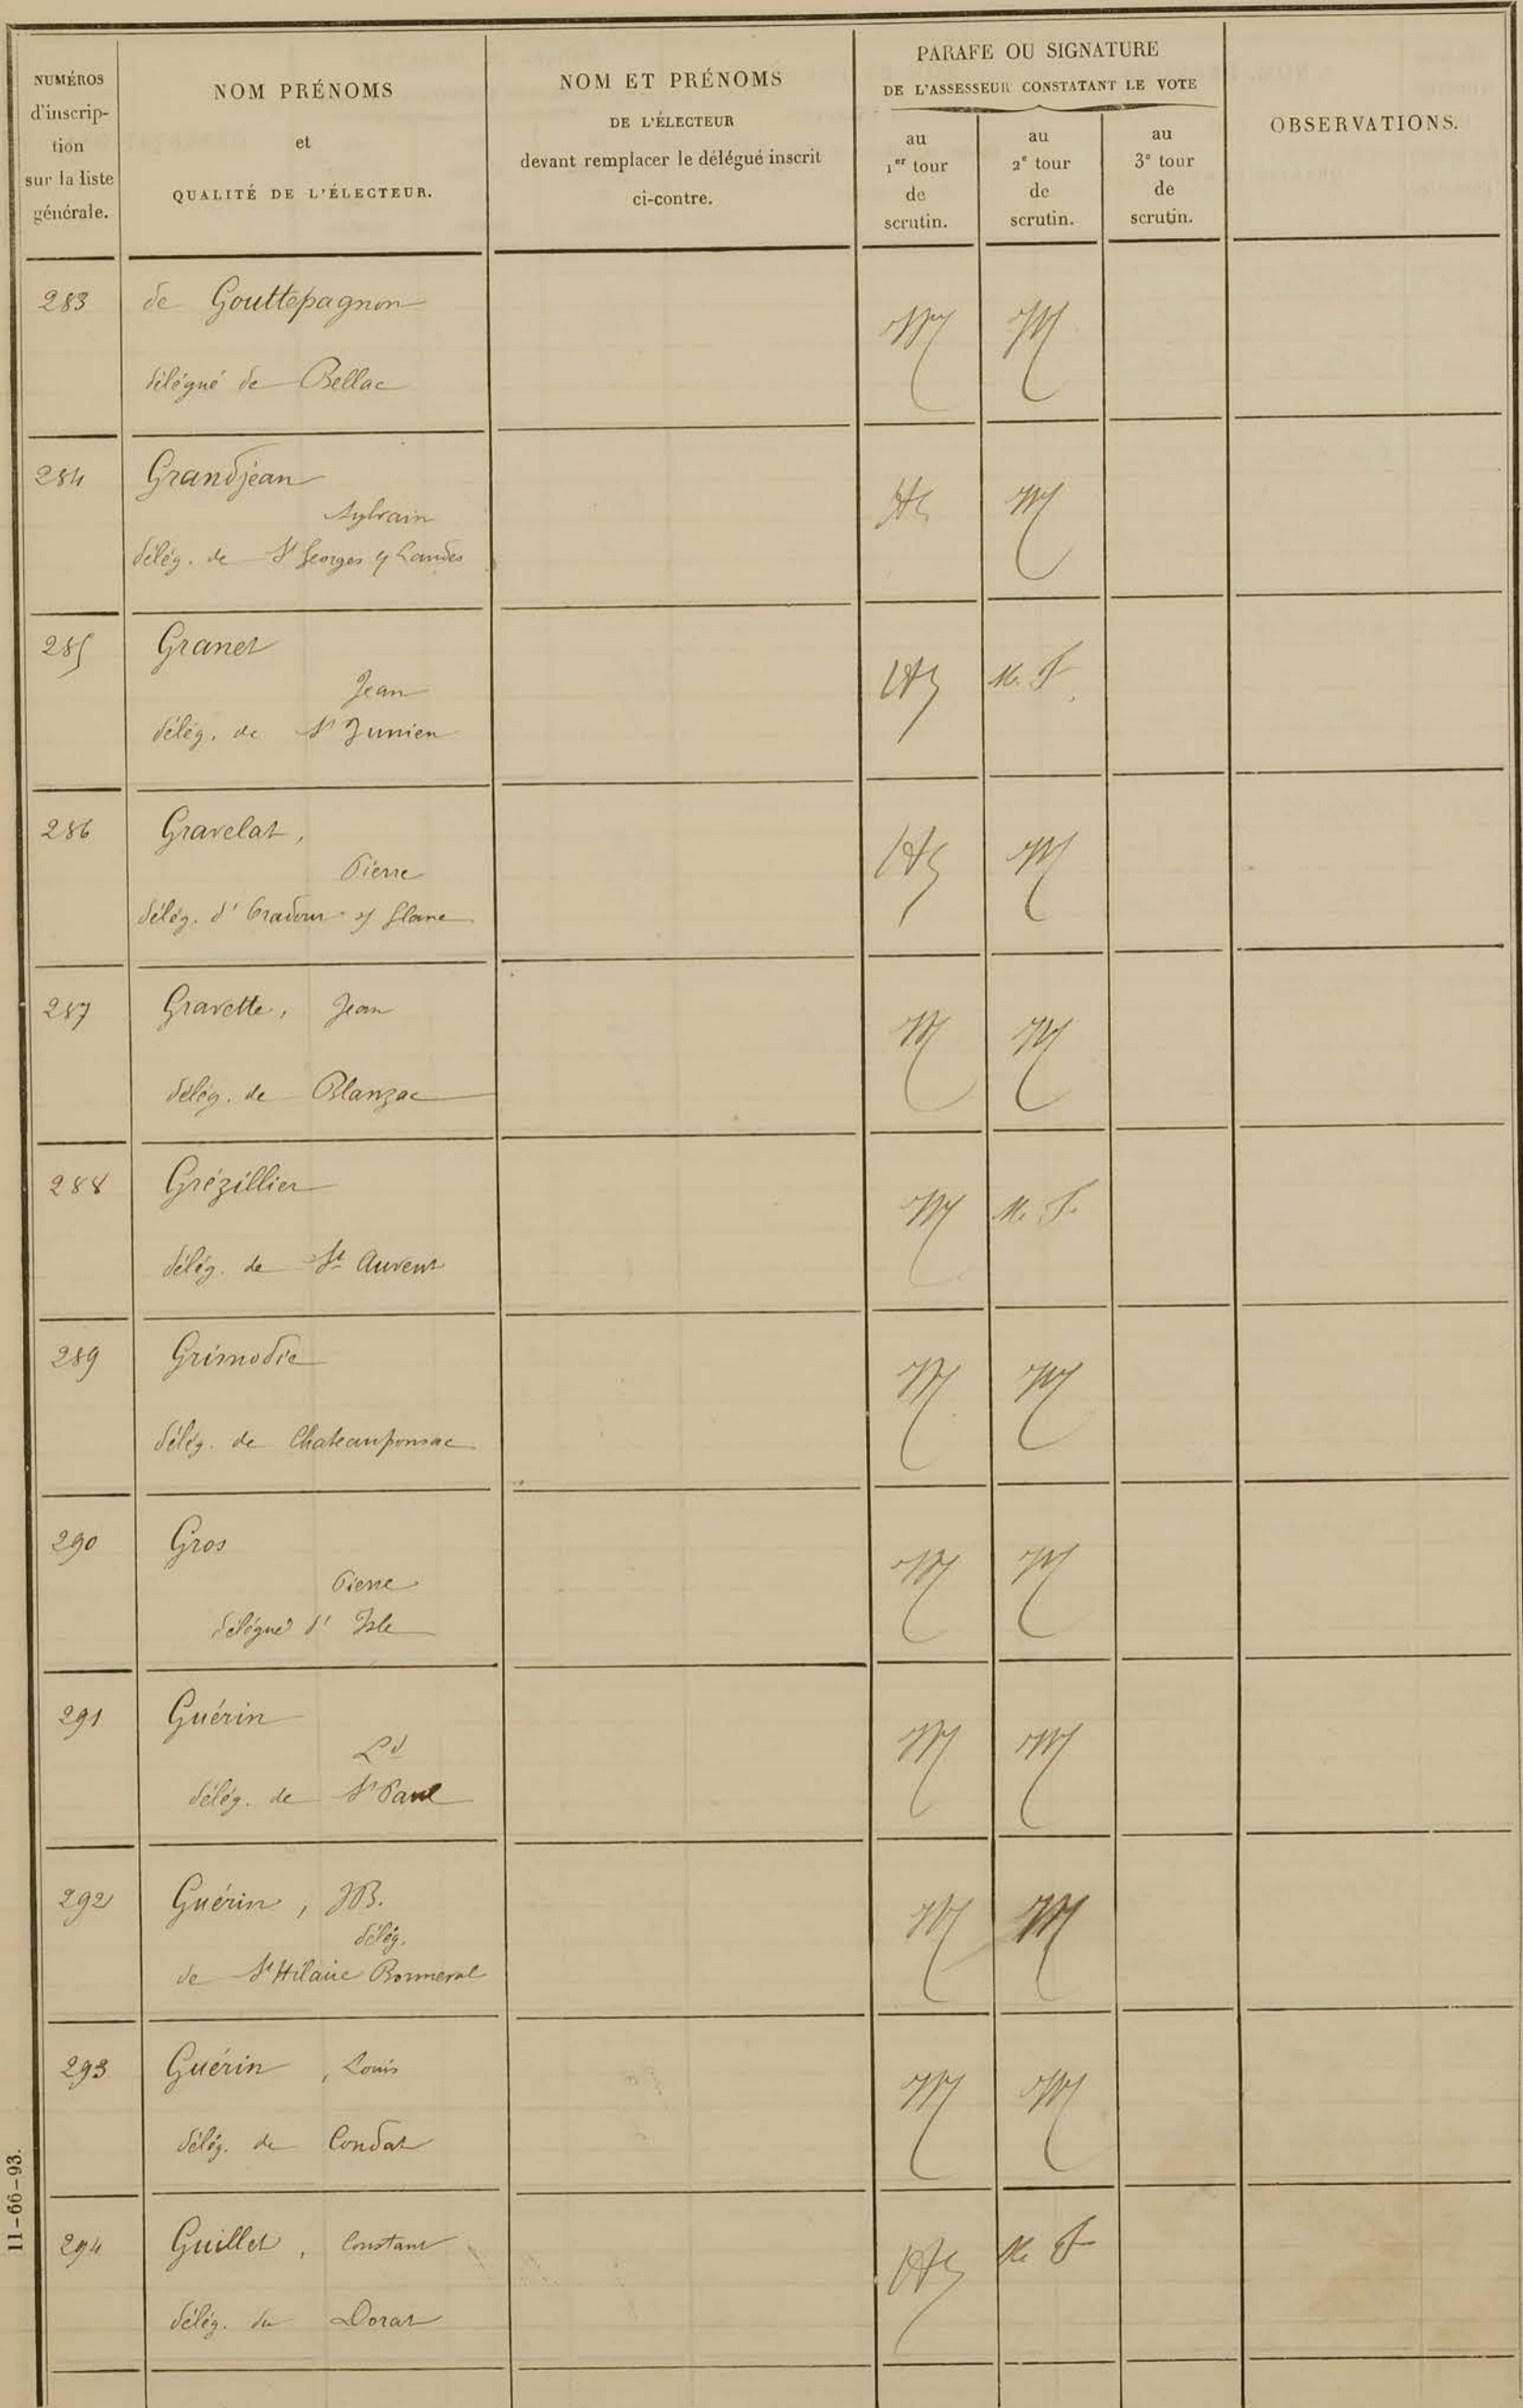 NUMÉROS
d'inscrip-
tion
sur la liste
générale.
NOM PRÉNOMS
et
QUALITÉ DE L'ÉLECTEUR.
NOM ET PRÉNOMS
DE L'ÉLECTEUR
devant remplacer le délégué inscrit
ci-contre.
PARAFE OU SIGNATURE
DE L'ASSESSEUR CONSTATANT LE VOTE
au
1er tour
de
scrutin.
au
2e tour
de
scrutin.
au
3e tour
de
scrutin.
OBSERVATIONS.
283 de Gouttepagnon
délégué de Bellac
284 Grandjean
Sylvain
délég. de St Georges les Landes
285 Granet
Jean
M. F.
délég. de St Junien
286 Gravelat,
Pierre
délég. d'Oradour s/ Glane
287 Gravette, Jean
délég. de Blanzac
288 Grézillier
M. F.
délég. de St Auvent
289 Grimodie
délég. de Chateauponsac
290 Gros
Pierre
délégué d'Isle
291 Guérin
Ld
délég. de St Paul
292 Guérin, JB.
délég.
de St Hilaire Bonneval
293 Guérin, Louis
délég. de Condat
294 Guillet, Constant
M. F
délég. du Dorat
11-66-93.